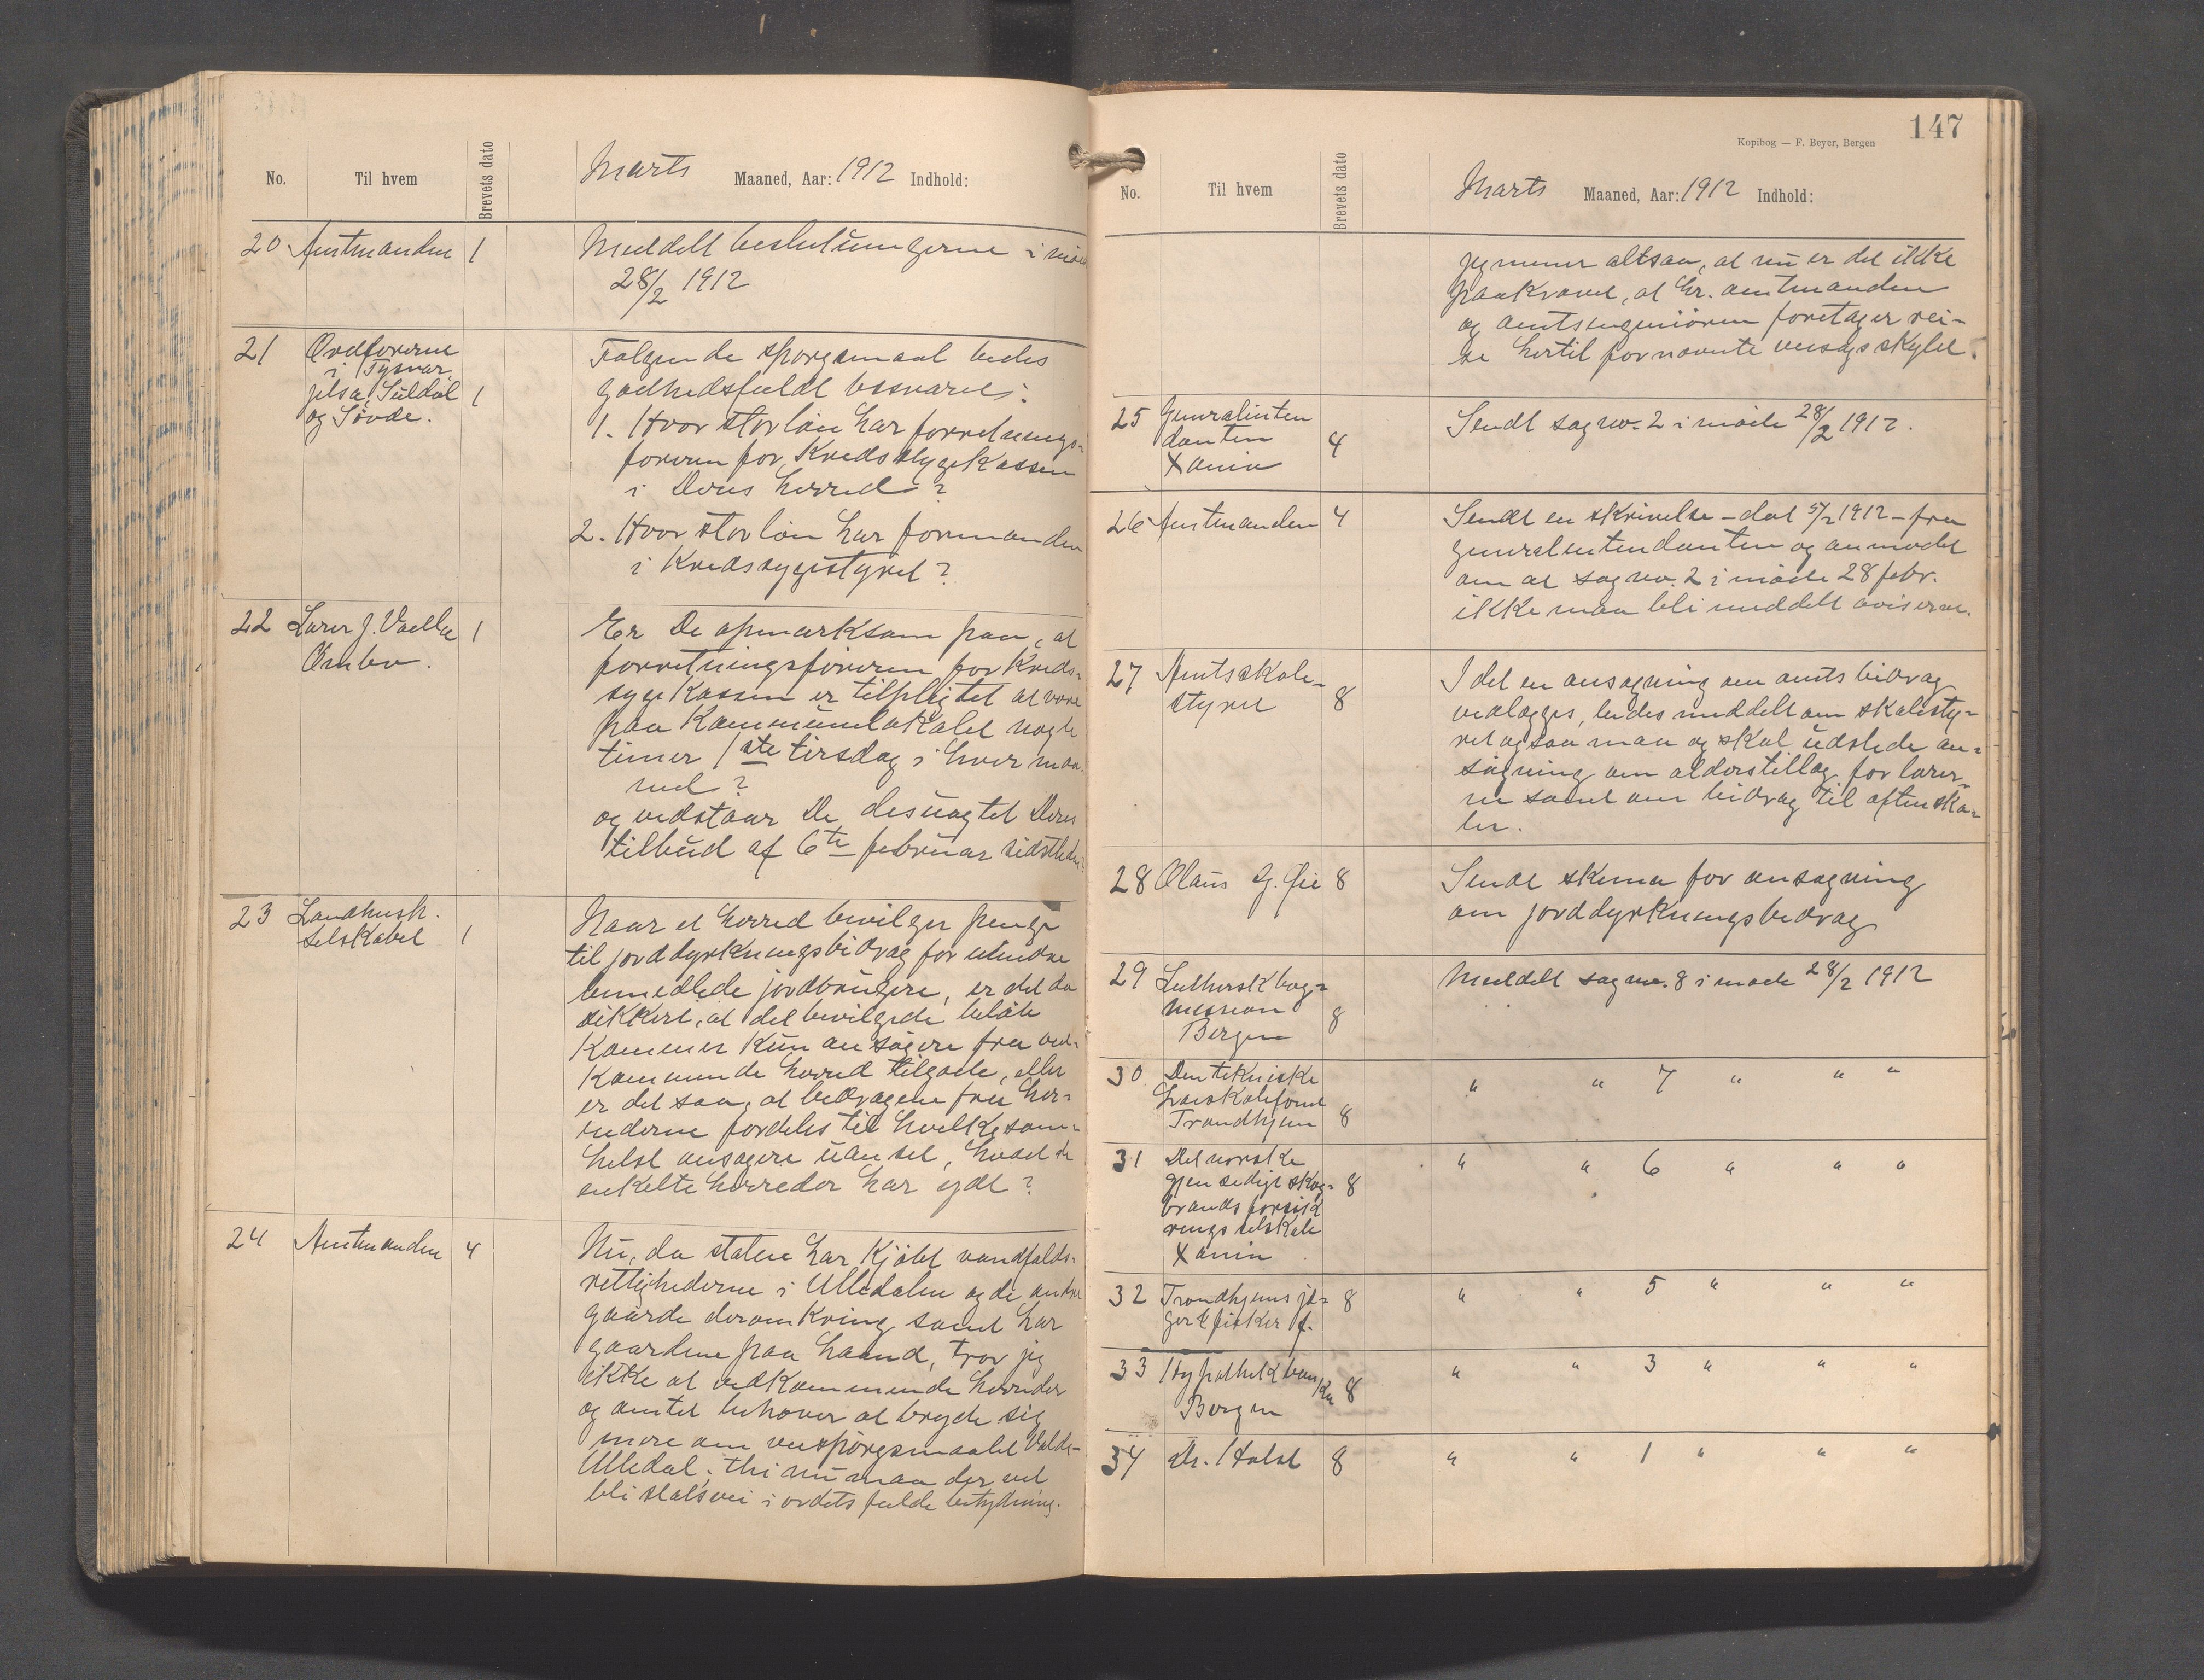 No. Til hvem Brevets dato Marts Maaned, Aar: 1912 Indhold:
20 Amtmanden 1 Meddelt beslutningerne i møde
28/2 1912
21 Ordførerne
i Tysvær,
Jelsa, Suldal 1
og Sövde.
Følgende spørgsmaal bedes
godhedsfuldt besvaret:
1. Hvor stor løn har forretnings-
føreren for Kredssygekassen
i Deres herred?
2. Hvor stor løn har formanden
i Kredssygestyret?
22 Lærer J. Vaella 1
Ombo.
Er De opmerksom paa, at
forretningsføreren for Kreds-
sygekassen er tilpligtet at være
paa Kommunelokalet nogle
timer 1ste tirsdag i hver maa-
ned?
og vedstaar De desuagtet Deres
tilbud af 6te februar sidstleden?
23 Landhush.
selskabet 1
Naar et herred bevilger penge
til jorddyrkningsbidrag for mindre
bemedlede jordbrugere, er det da
sikkert, at det bevilgede beløb
kommer kun ansøgere fra ved-
kommende herred tilgode, eller
er det saa, at bidragene fra her-
rederne fordeles til hvilkesom-
helst ansøgere uanset, hvad de
enkelte herreder har ydt?
24 Amtmanden 4
Nu, da staten har kjøbt vandfalds-
rettighederne i Ulledalen og de andre
gaarde deromkring samt har
gaardene paa haand, tror jeg
ikke at vedkommende herreder
og amtet behøver at bryde sig
mere om veispørgsmaalet Valde-
Ulledal; thi nu maa der vel
bli statsvei i ordets fulde betydning.
147
Kopibog — F. Beyer, Bergen
No. Til hvem Brevets dato Marts Maaned, Aar: 1912 Indhold:
Jeg mener altsaa, at nu er det ikke
paakrævet, at hr. amtmanden
og amtsingeniøren foretager rei-
se hertil for nævnte veisags skyld.
25 Generalinten
danten 4
X ania
Sendt sag no. 2 i møde 28/2 1912.
26 Amtmanden 4 Sendt en skrivelse – dat 5/2 1912 – fra
generalintendanten og anmodet
om at sag no. 2 i møde 28 febr.
ikke maa bli meddelt aviserne.
27 Amtsskole-
styret 8
Idet en ansøgning om amtsbidrag
vedlægges, bedes meddelt om skolesty-
ret ogsaa maa og skal udstede an-
søgning om alderstillæg for lærer-
ne samt om bidrag til aftensko-
ler.
28 Olaus G. Øie 8 Sendt skema for ansøgning
om jorddyrkningsbidrag
29 Luthersk bog-
mission 8
Bergen
Meddelt sag no. 8 i møde 28/2 1912
30 Den tekniske
høiskolefond
Trondhjem 8
" " 7 " " "
31 Det norske
gjensidige skog- 8
brandsforsik
ringsselskab
X ania
" " 6 " " "
32 Trondhjems jæ- 8
ger & fisker f.
" " 5 " " "
33 Hypothekbanken 8
Bergen
" " 3 " " "
34 Dr. Holst 8 " " 1 " " "